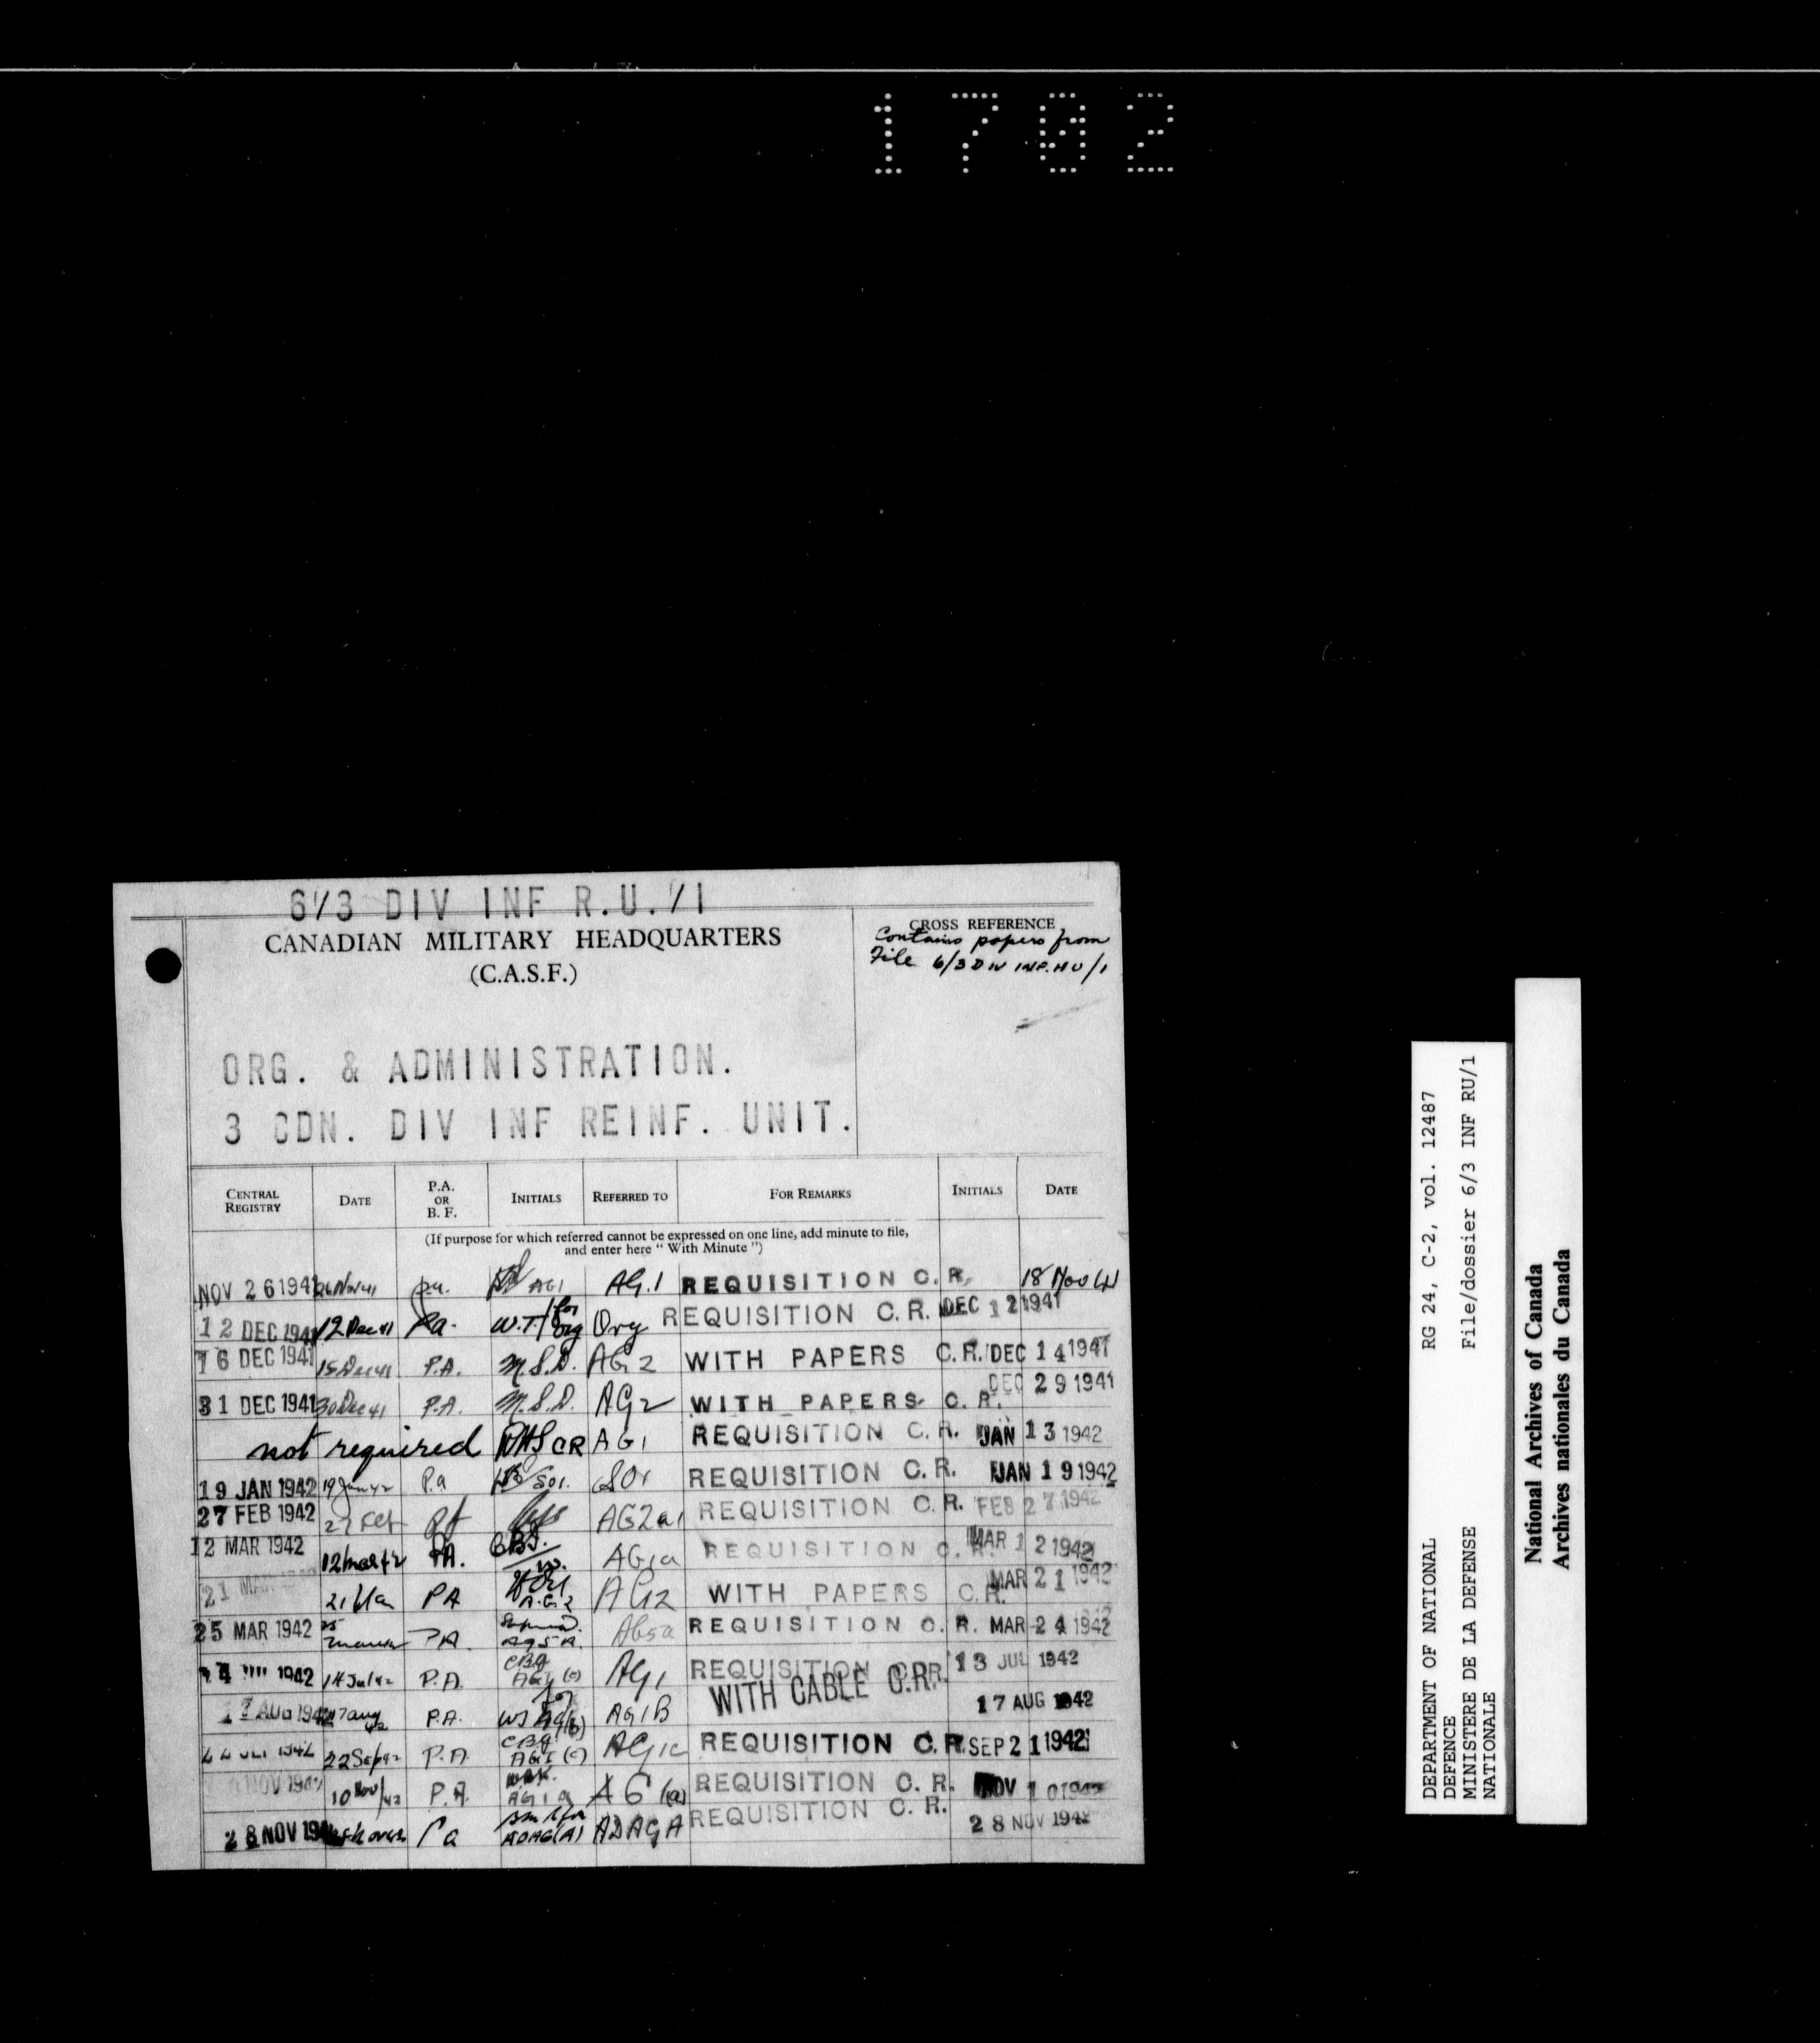 1702
6/3 DIV INF R.U./1
CANADIAN MILITARY HEADQUARTERS
(C.A.S.F.)
CROSS REFERENCE
Contains papers from
File 6/3 DIV INF. HU/1
ORG. & ADMINISTRATION.
3 CDN. DIV INF REINF. UNIT.
CENTRAL REGISTRY DATE P.A. OR B. F. INITIALS REFERRED TO FOR REMARKS INITIALS DATE
(If purpose for which referred cannot be expressed on one line, add minute to file,
and enter here " With Minute ")
NOV 26 1941 26 Nov 41 p.a. AG1 AG.1 REQUISITION C.R. 18 Nov 41
12 DEC 1941 12 Dec 41 Pa. W.T. for Org Org REQUISITION C.R. DEC 12 1941
16 DEC 1941 15 Dec 41 P.A. M.S.D. AG2 WITH PAPERS C.R. DEC 14 1941
31 DEC 1941 30 Dec 41 P.A. M.S.D. AG2 WITH PAPERS C.R. DEC 29 1941
not required CR AG1 REQUISITION C.R. JAN 13 1942
19 JAN 1942 19 Jan 42 P.a SO1. SO1 REQUISITION C.R. JAN 19 1942
27 FEB 1942 27 Feb AG2a REQUISITION C.R. FEB 27 1942
12 MAR 1942 12 Mar 42 PA. AG1a REQUISITION C.R. MAR 12 1942
21 MAR 21 Mar PA A.G.2 AG2 WITH PAPERS C.R. MAR 21 1942
25 MAR 1942 25 March PA. AG5A. AG5a REQUISITION C.R. MAR 24 1942
14 1942 14 Jul 42 P.A. CBG AG1(c) AG1 REQUISITION C.R. 13 JUL 1942
WITH CABLE C.R.
17 AUG 1942 17 Aug 42 P.A. for AG1(b) AG1B 17 AUG 1942
22 1942 22 Sep 42 P.A. CBG AG1(c) AG1c REQUISITION C.R. SEP 21 1942
NOV 1942 10 Nov/42 P.A. AG1a AG 1(a) REQUISITION C.R. NOV 10 1942
28 NOV 194 Pa ADAG(A) ADAGA REQUISITION C.R. 28 NOV 1942
DEPARTMENT OF NATIONAL RG 24, C-2, vol. 12487
DEFENCE
MINISTERE DE LA DEFENSE File/dossier 6/3 INF RU/1
NATIONALE
National Archives of Canada
Archives nationales du Canada